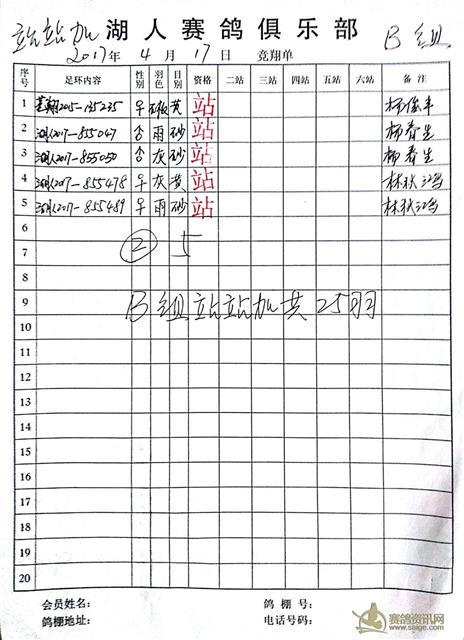 站站加 湖人赛鸽俱乐部 B组
2017年 4 月 17 日 竞翔单
序号 足环内容 性别 羽色 目别 资格 二站 三站 四站 五站 六站 备注
1 2015-135235 ♀ 黄 站 杨俊丰
2 湖人2017-855047 ♂ 雨 砂 站 杨春生
3 湖人2017-855050 ♂ 灰 砂 站 杨春生
4 湖人2017-855478 ♀ 灰 黄 站 林秋鸿
5 湖人2017-855489 ♀ 雨 砂 站 林秋鸿
6
7 ② 5
8
9 B组站站加共25羽
10
11
12
13
14
15
16
17
18
19
20
会员姓名: 鸽棚号:
鸽棚地址: 电话号码:
赛鸽资讯网
www.saige.com